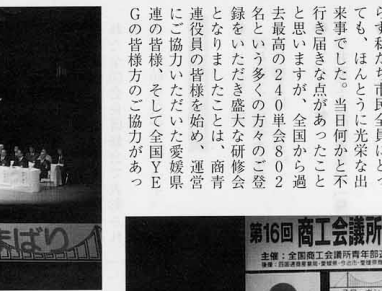 らず私たち市民全員にとっ
ても、ほんとうに光栄な出
来事でした。当日何かと不
行き届きな点があったこと
と思いますが、全国から過
去最高の２４０単会８０２
名という多くの方々のご登
録をいただき盛大な研修会
となりましたことは、商青
連役員の皆様を始め、運営
にご協力いただいた愛媛県
連の皆様、そして全国ＹＥ
Ｇの皆様方のご協力があっ
まばり
第16回 商工会議所
主催：全国商工会議所青年部連